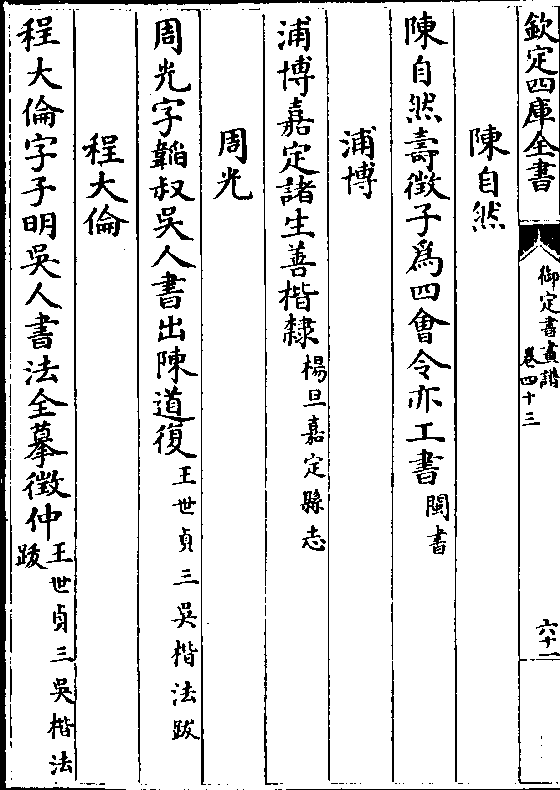 欽定四庫全書
御定書畫譜
卷四十三
六十一
陳自然
陳自然壽徵子爲四會令亦工書閩書
浦博
浦博嘉定諸生善楷隸楊旦嘉定縣志
周光
周光字韜叔吳人書出陳道復王世貞三吳楷法跋
程大倫
程大倫字子明吳人書法全摹徵仲王世貞三吳楷法跋